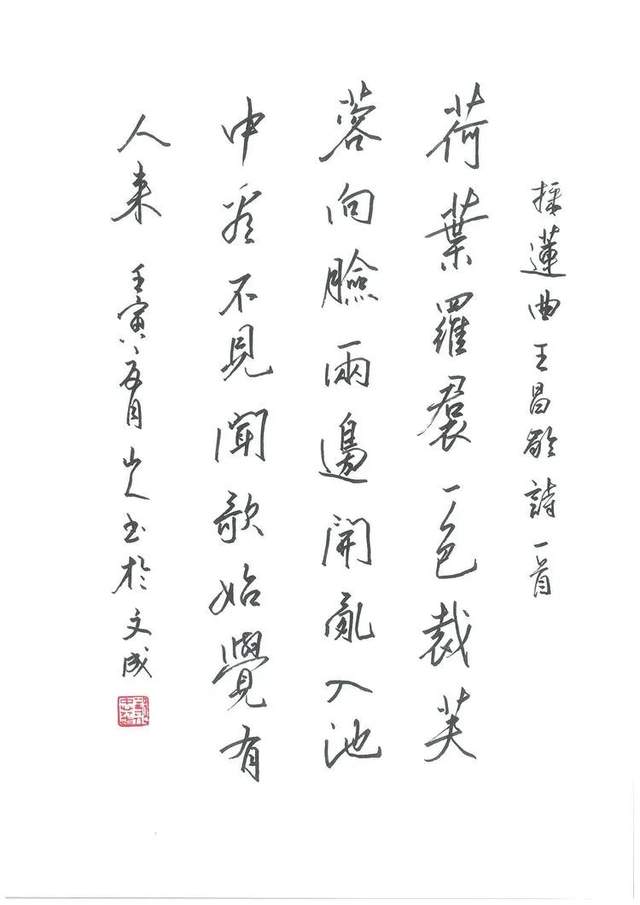 採蓮曲王昌齡詩一首
荷葉羅裠一色裁芙
蓉向臉兩邊開亂入池
中看不見聞歌始覺有
人来 壬寅五月山人书於文成